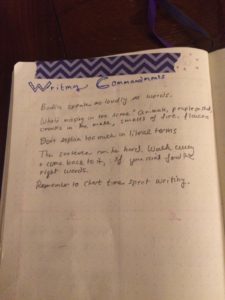 Writing Commandments
Bodies speak as loudly as words.
What's missing in the scene? Animals, people on the
in the , smells of fire, flowers
Don't explain too much in literal terms
The can be hard. Walk away
+ come back to it, if you can't find the
right words.
Remember to chart time spent writing.